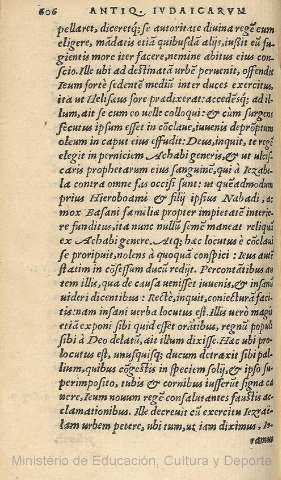 606 ANTIQ. IVDAICARVM
pellaret, diceretq́; se autoritate diuina regē eum
eligere, mādatis etiā quibusdā alijs, iussit eū fu-
gientis more excedere, nemine abitus eius con-
scio. Ille vbi ad destinatā vrbē peruenit, offendit
Ieum fortè sedentē mediū inter duces exercitus,
ita ut Helisæus sore prædixerat: accedēsq́; ad il-
lum, ait se cum eo velle colloqui: & cùm surgens
secutus ipsum esset in cōclaue, iuuenis depróptum
oleum in caput eius effudit: Deus, inquit, te regē
elegit in perniciem Achabi generis, & ut ulcis-
caris prophetarum eius sanguinē, qui à Iezabe-
la contra omne fas occisi sunt: ut quēadmodum
prius Hieroboami & filij ipsius Nabadi, ac
mox Basani familia propter impietatē interie-
re funditus, ita nunc nullū semē maneat reliquū
ex Achabi genere. Atq́; hæc locutus è cōclaui
se proripuit, nolens à quoquā conspici: Ieus autē
statim in cōsessum ducū redijt. Percontātibus au-
tem illis, qua de causa venisset iuuenis, & insanū
uideri dicentibus: Rectè, inquit, coniecturā faci-
tis: nam insani verba locutus est. Illis vero magis
etiā exponi sibi quid esset orātibus, regnū populi
sibi à Deo delatū, ait illum dixisse. Hæc ubi pro-
locutus est, unusquisq́; ducum detraxit sibi pal-
lium, quibus cōgestis in speciem solij, & ipso su-
perimposito, tubis & cornibus iusserūt signa ca-
nere, Ieum nouum regē consalutantes faustis ac-
clamationibus. Ille decreuit cū exercitu Iezrai-
lam urbem petere, ubi tum, ut iam diximus, Io-
ramus
Ministerio de Educación, Cultura y Deporte